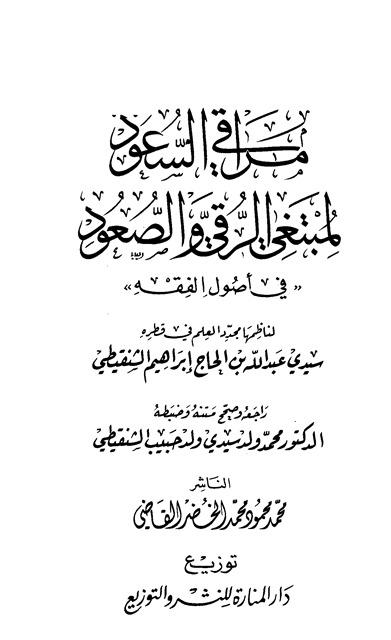 مراقي السعود
لمبتغي الرقي والصعود
« في أصول الفقه »
لناظمها مجدد العلم في قطره
سيدي عبد الله بن الحاج إبراهيم الشنقيطي
راجعه وصحح متنه وضبطه
الدكتور محمد ولد سيدي ولد حبيب الشنقيطي
الناشر
محمد محمود محمد الخضر القاضي
توزيع
دار المنارة للنشر والتوزيع